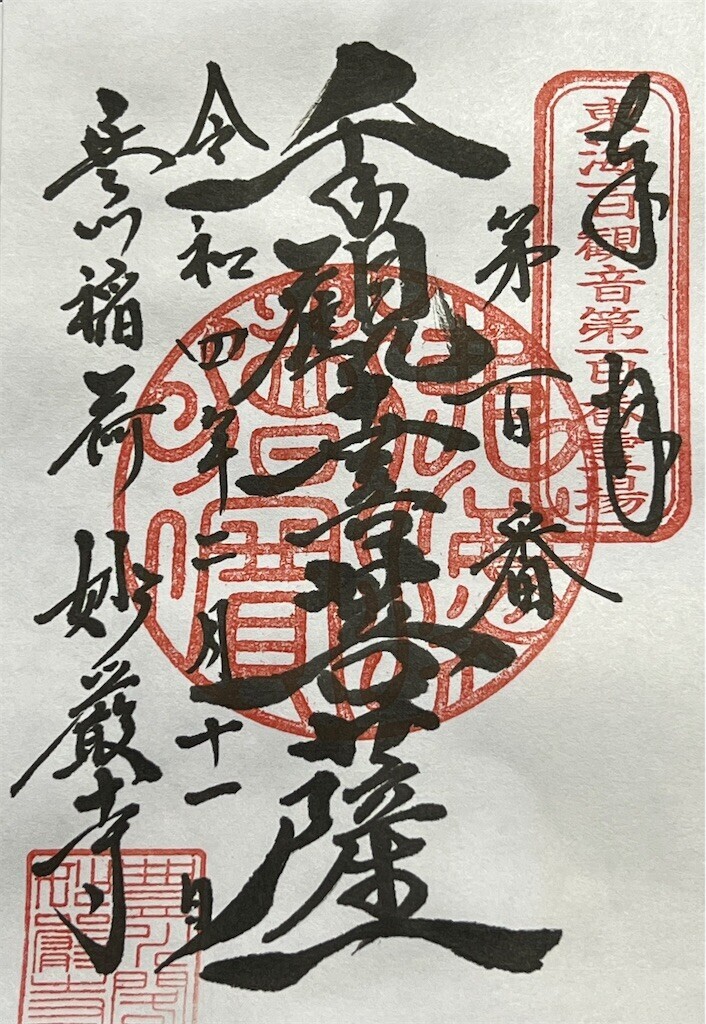 奉拝
東海百觀音第百番霊場
第百番
千手觀音菩薩
令和四年二月十一日
豊川稲荷 妙厳寺
豊川閣
妙嚴寺